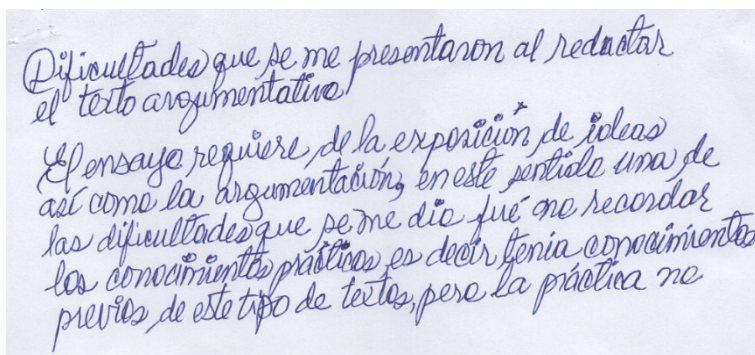 Dificultades que se me presentaron al redactar
el texto argumentativo
El ensayo requiere de la exposición de ideas
así como la argumentación, en este sentido una de
las dificultades que se me dio fué no recordar
los conocimientos prácticos, es decir tenia conocimientos
previos de este tipo de textos, pero la práctica no